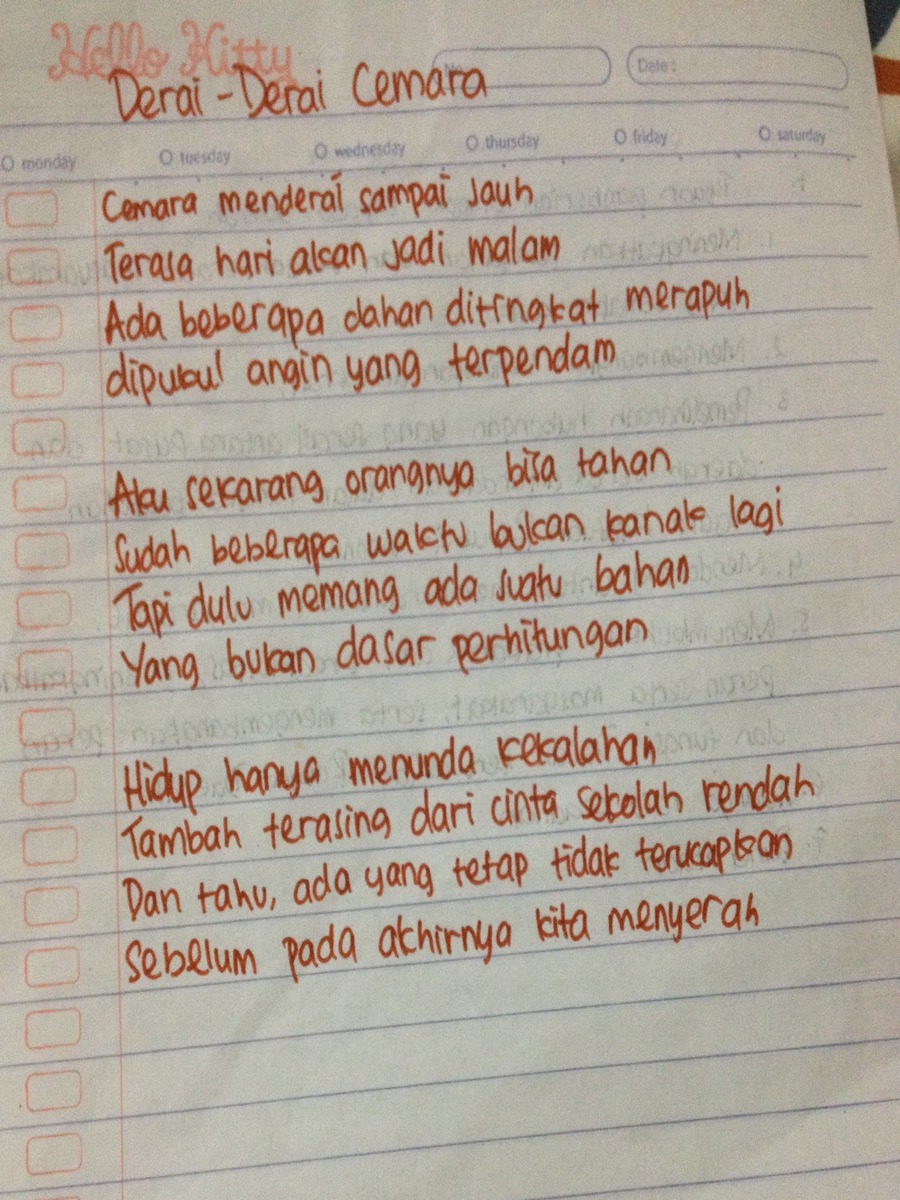 Hello Kitty
No
Date:
Derai-Derai Cemara
monday tuesday wednesday thursday friday saturday
Cemara menderai sampai Jauh
Terasa hari akan jadi malam
Ada beberapa dahan ditingkat merapuh
dipukul angin yang terpendam
Aku sekarang orangnya bisa tahan
Sudah beberapa waktu bukan kanak lagi
Tapi dulu memang ada suatu bahan
Yang bukan dasar perhitungan
Hidup hanya menunda kekalahan
Tambah terasing dari cinta sekolah rendah
Dan tahu, ada yang tetap tidak terucapkan
Sebelum pada akhirnya kita menyerah